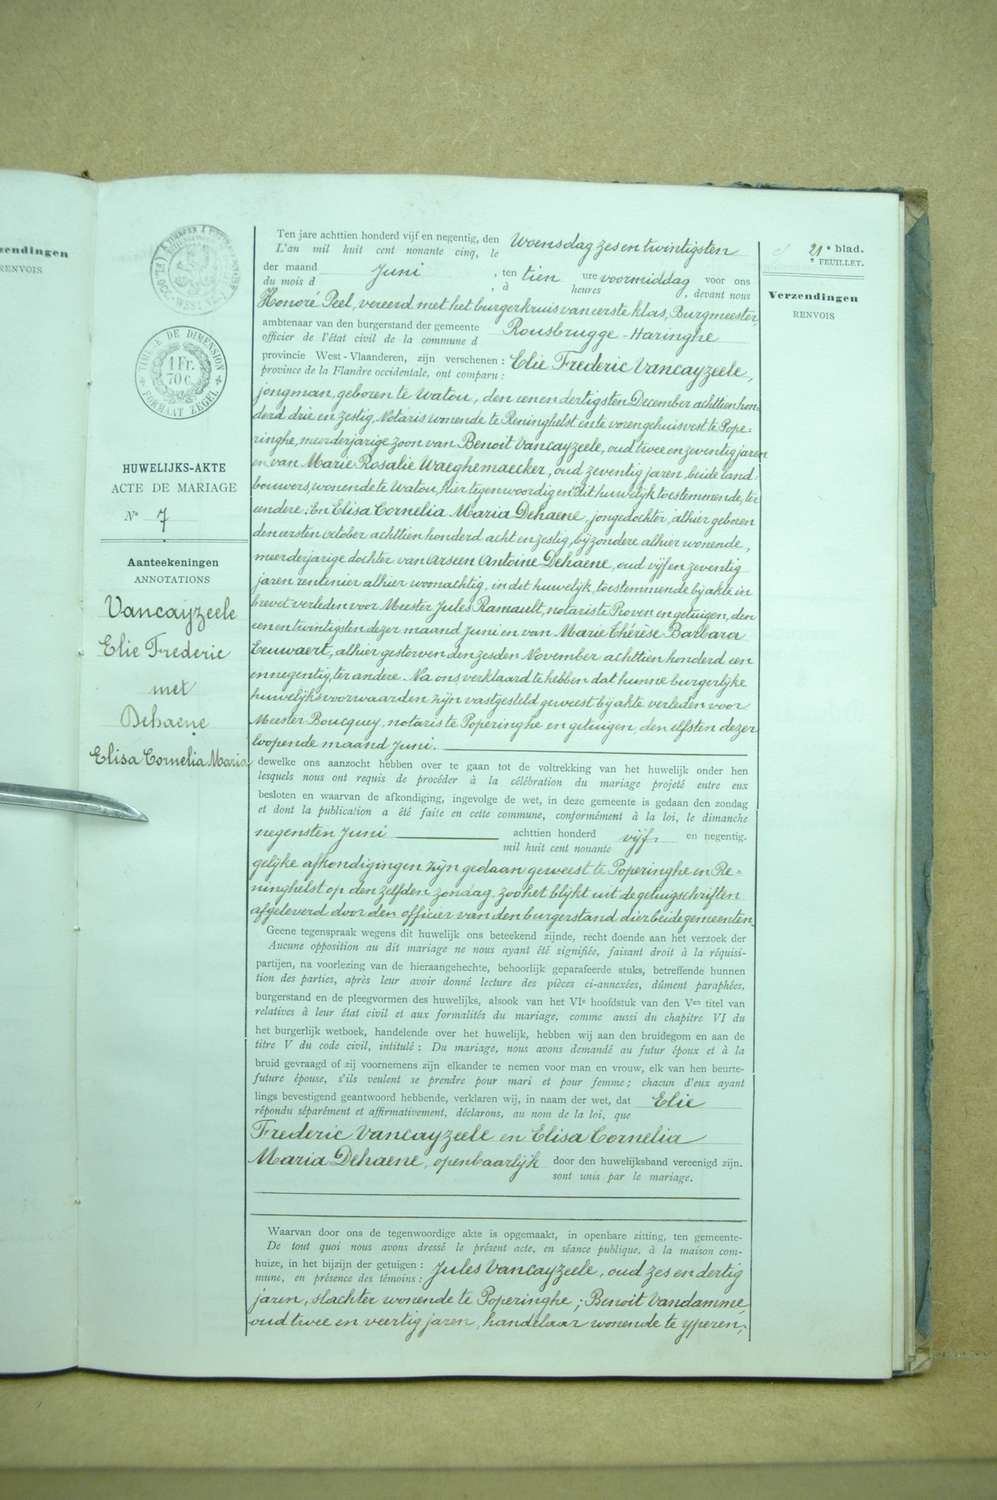 zendingen
RENVOIS
TIMBRE DE DIMENSION
1 Fr.
70 c.
FORMAAT ZEGEL
HUWELIJKS-AKTE
ACTE DE MARIAGE
N° 7
Aanteekeningen
ANNOTATIONS
Vancayzeele
Elie Frederic
met
Dehaene
Elisa Cornelia Maria
21e blad.
e FEUILLET.
Verzendingen
RENVOIS
Ten jare achttien honderd vijf en negentig, den Woensdag zes en twintigsten
L'an mil huit cent nonante cinq, le
der maand Juni, ten tien ure voormiddag voor ons
du mois d , à heures , devant nous
Honoré Peel, vereerd met het burgerkruis van eerste klas, Burgmeester
ambtenaar van den burgerstand der gemeente Rousbrugge-Haringhe
officier de l'état civil de la commune d
provincie West-Vlaanderen, zijn verschenen : Elie Frederic Vancayzeele,
province de la Flandre occidentale, ont comparu :
jongman, geboren te Watou, den eenen dertigsten December achttien hon-
derd drie en zestig, Notaris wonende te Reninghelst en te voren gehuisvest te Pope-
ringhe, meerderjarige zoon van Benoit Vancayzeele, oud twee en zeventig jaren
en van Marie Rosalie Waeghemaecker, oud zeventig jaren, beide land-
bouwers, wonende te Watou, hier tegenwoordig en dit huwelijk toestemmende, ter
eendere; En Elisa Cornelia Maria Dehaene, jongedochter, alhier geboren
den eersten october achttien honderd acht en zestig, bijzondere alhier wonende,
meerderjarige dochter van Arseen Antoine Dehaene, oud vijf en zeventig
jaren rentenier alhier woonachtig, in dit huwelijk, toestemmende bij akte in
brevet verleden voor Meester Jules Ramault, notaris te Proven en getuigen, den
een en twintigsten dezer maand Juni en van Marie Thérèse Barbara
Leuwaert, alhier gestorven den zesden November achttien honderd een
en negentig, ter andere. Na ons verklaard te hebben dat hunne burgerlijke
huwelijksvoorwaarden zijn vastgesteld geweest bij akte verleden voor
Meester Boucquey, notaris te Poperinghe en getuigen, den elfsten dezer
loopende maand Juni.
dewelke ons aanzocht hebben over te gaan tot de voltrekking van het huwelijk onder hen
lesquels nous ont requis de procéder à la célébration du mariage projeté entre eux
besloten en waarvan de afkondiging, ingevolge de wet, in deze gemeente is gedaan den zondag
et dont la publication a été faite en cette commune, conformément à la loi, le dimanche
negensten Juni achttien honderd vijf en negentig.
mil huit cent nonante
gelijke afkondigingen zijn gedaan geweest te Poperinghe en Re-
ninghelst op den zelfden zondag, zoo het blijkt uit de getuigschriften
afgeleverd door den officier van den burgerstand dier beide gemeenten.
Geene tegenspraak wegens dit huwelijk ons beteekend zijnde, recht doende aan het verzoek der
Aucune opposition au dit mariage ne nous ayant été signifiée, faisant droit à la réquisi-
partijen, na voorlezing van de hieraangehechte, behoorlijk geparafeerde stuks, betreffende hunnen
tion des parties, après leur avoir donné lecture des pièces ci-annexées, dûment paraphées,
burgerstand en de pleegvormen des huwelijks, alsook van het VIe hoofdstuk van den Ven titel van
relatives à leur état civil et aux formalités du mariage, comme aussi du chapitre VI du
het burgerlijk wetboek, handelende over het huwelijk, hebben wij aan den bruidegom en aan de
titre V du code civil, intitulé : Du mariage, nous avons demandé au futur époux et à la
bruid gevraagd of zij voornemens zijn elkander te nemen voor man en vrouw, elk van hen beurte-
future épouse, s'ils veulent se prendre pour mari et pour femme; chacun d'eux ayant
lings bevestigend geantwoord hebbende, verklaren wij, in naam der wet, dat Elie
répondu séparément et affirmativement, déclarons, au nom de la loi, que
Frederic Vancayzeele en Elisa Cornelia
Maria Dehaene, openbaarlijk door den huwelijksband vereenigd zijn.
sont unis par le mariage.
Waarvan door ons de tegenwoordige akte is opgemaakt, in openbare zitting, ten gemeente-
De tout quoi nous avons dressé le présent acte, en séance publique, à la maison com-
huize, in het bijzijn der getuigen : Jules Vancayzeele, oud zes en dertig
mune, en présence des témoins :
jaren, slachter wonende te Poperinghe; Benoit Vandamme,
oud twee en veertig jaren, handelaar wonende te Yperen;